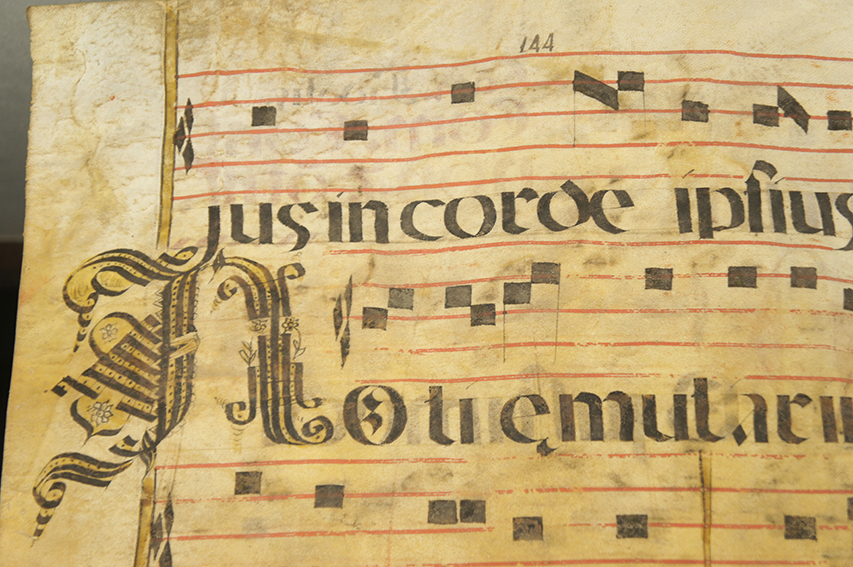 144
jus in corde ipsius
Noli ęmulari